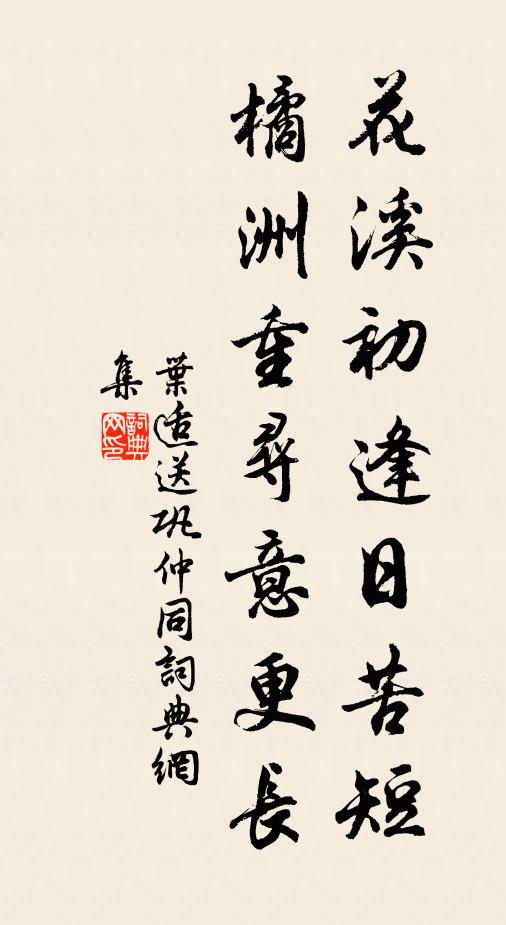 花溪初逢日苦短
橘洲重尋意更長
葉适送巩仲同詞典網
集
詞典
网印